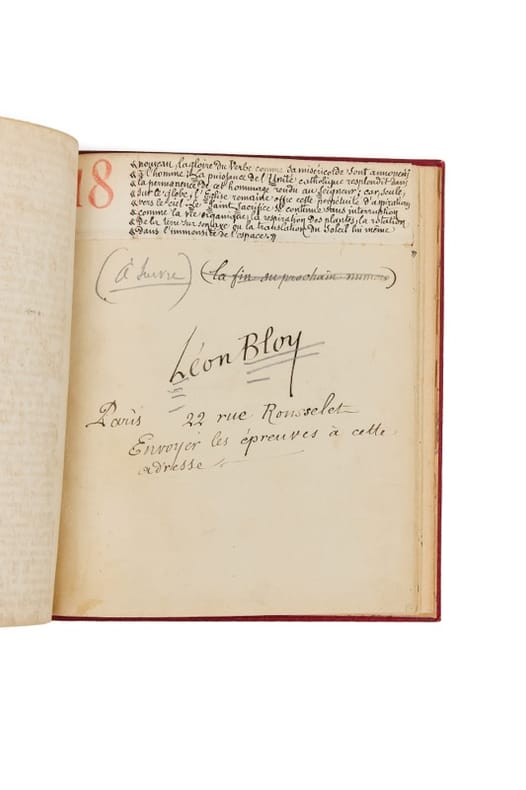 18
« nouveau, la gloire du Verbe comme sa miséricorde sont annoncés
« à l'homme. La puissance de l'Unité catholique resplendit dans
« la permanence de cet hommage rendu au Seigneur; car, seule,
« sur le globe, l'Église romaine offre cette perpétuité d'aspiration
« vers le ciel. Le Saint Sacrifice se continue sans interruption
« comme la vie organique, la respiration des plantes, la rotation
« de la terre sur son axe ou la translation du Soleil lui même
« dans l'immensité de l'espace. »
(à suivre) (la fin au prochain numéro)
Léon Bloy
Paris 22 rue Rousselet
Envoyer les épreuves à cette
adresse